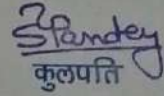 SPandey
कुलपति